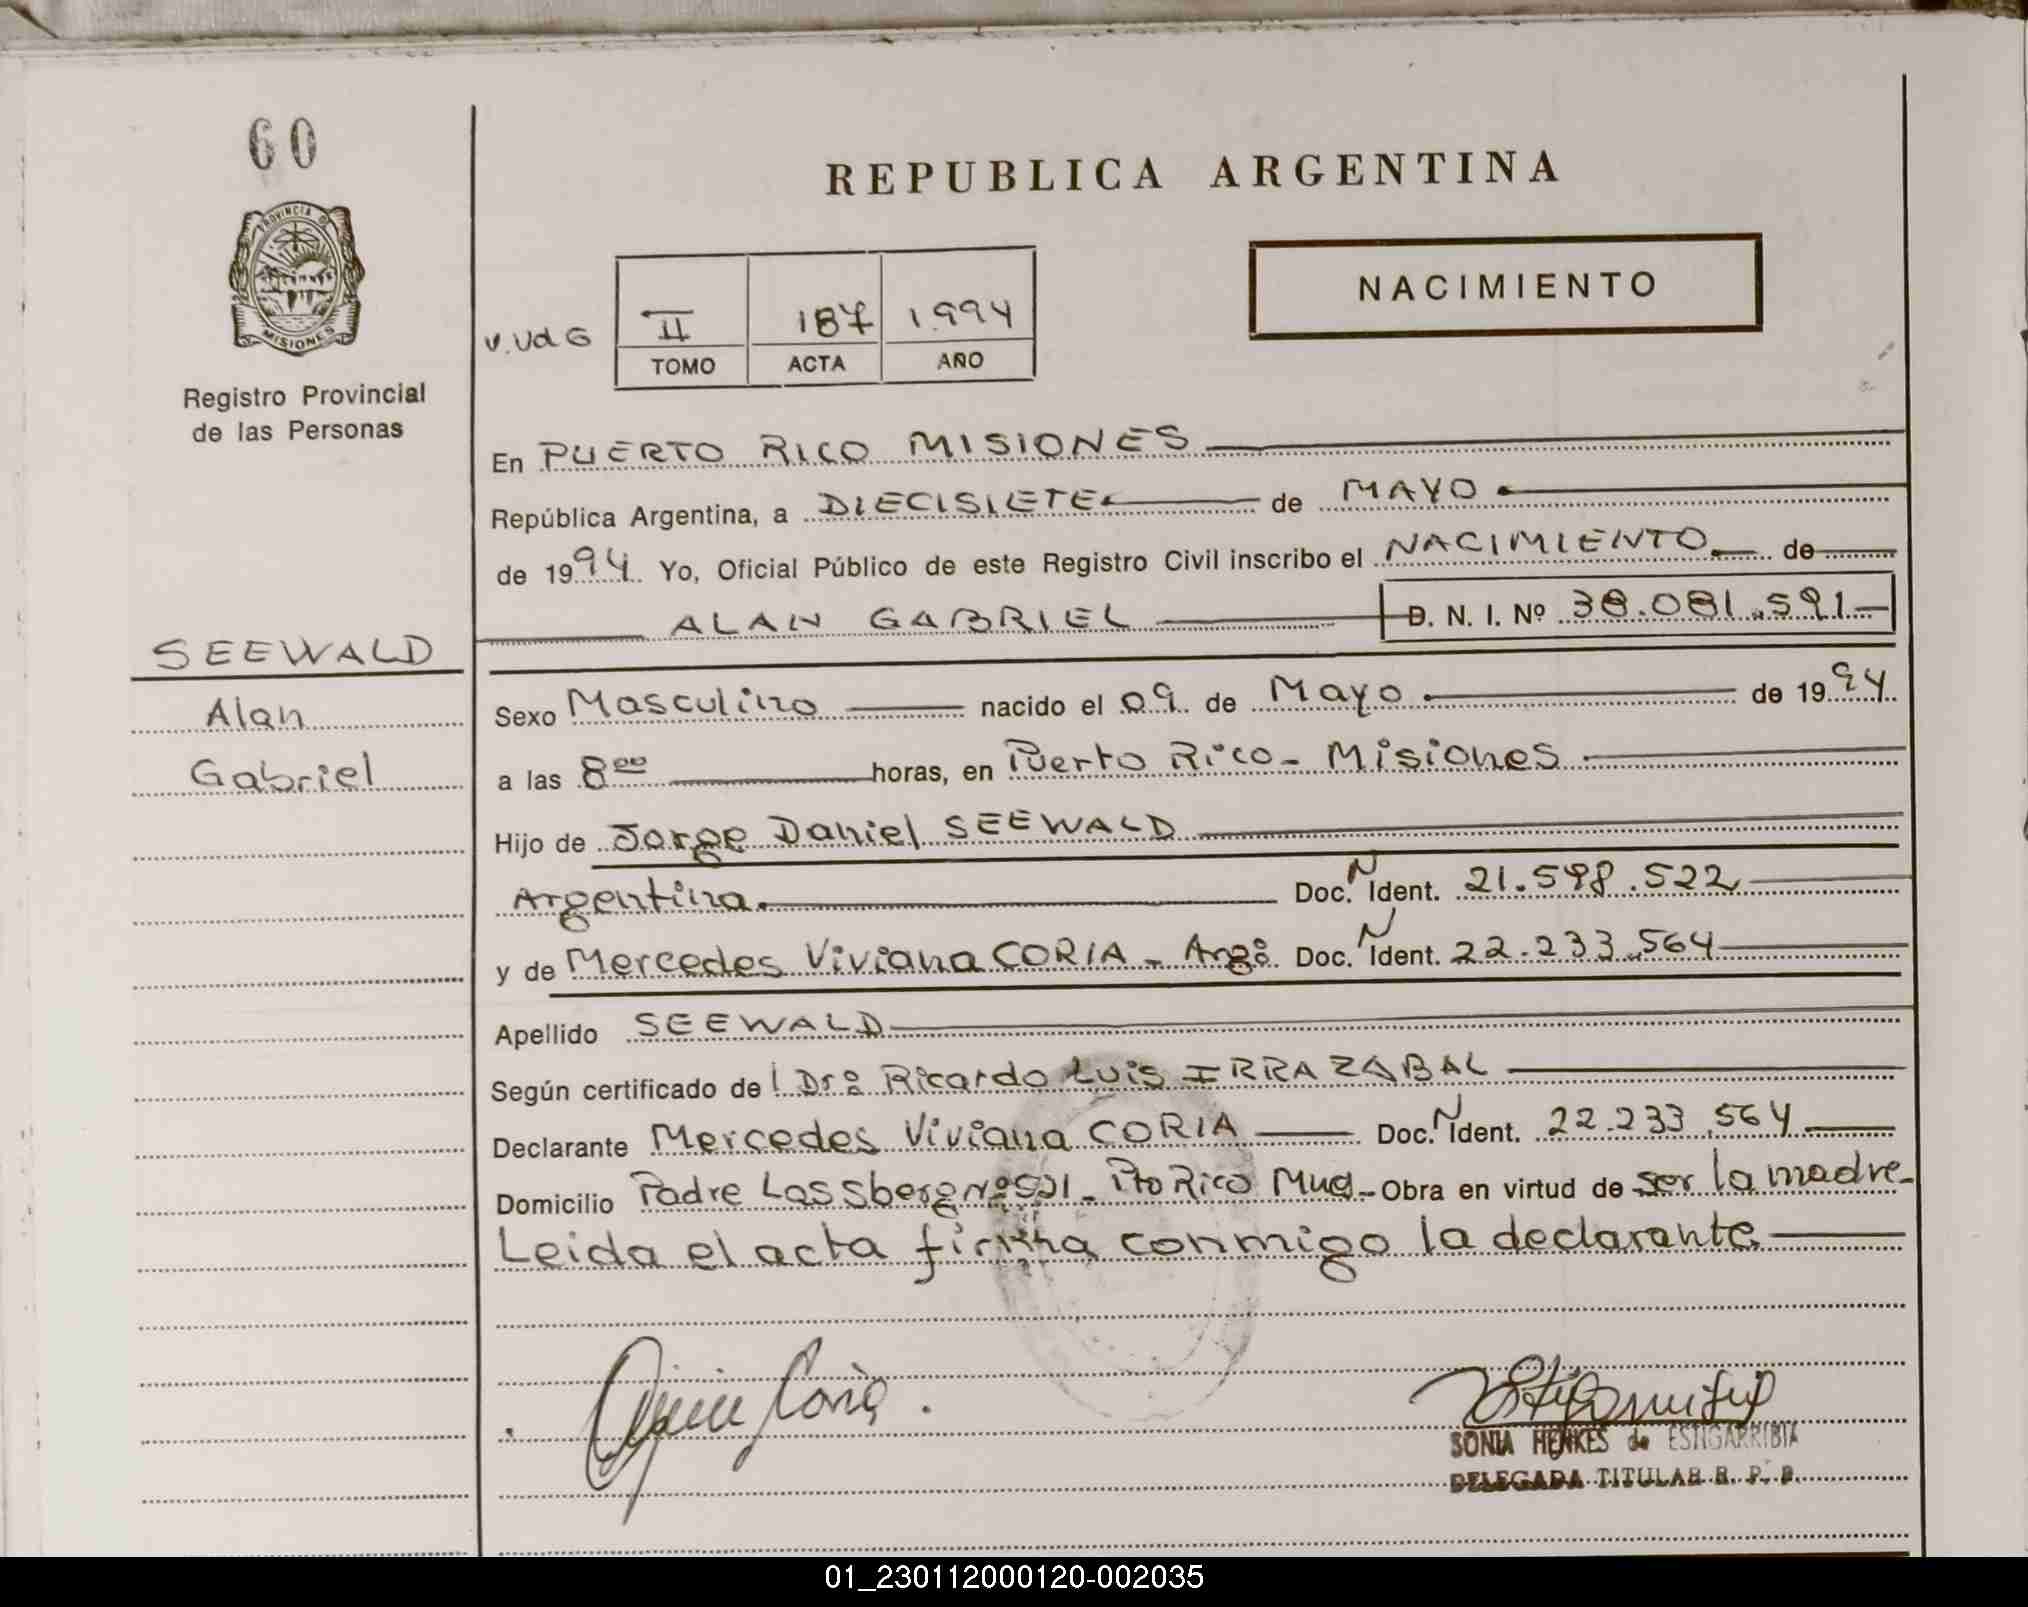 60
PROVINCIA DE
MISIONES
Registro Provincial
de las Personas
REPUBLICA ARGENTINA
NACIMIENTO
V.Ud G
II 187 1994
TOMO ACTA AÑO
En PUERTO RICO MISIONES
República Argentina, a DIECISIETE de MAYO
de 1994 Yo, Oficial Público de este Registro Civil inscribo el NACIMIENTO de
ALAN GABRIEL D. N. I. Nº 38.081.591
SEEWALD
Alan
Gabriel
Sexo Masculino nacido el 09 de Mayo de 1994
a las 8 00 horas, en Puerto Rico - Misiones
Hijo de Jorge Daniel SEEWALD
Argentina. Doc. N Ident. 21.598.522
y de Mercedes Viviana CORIA - Argº Doc. N Ident. 22.233.564
Apellido SEEWALD
Según certificado de l Drº Ricardo Luis IRRAZABAL
Declarante Mercedes Viviana CORIA Doc. N Ident. 22.233.564
Domicilio Padre Lassberg Nº Pto Rico - Obra en virtud de ser la madre -
Leida el acta firma conmigo la declarante
SONIA HENKES de ESTIGARRIBIA
DELEGADA TITULAR R. P. P.
01_230112000120-002035